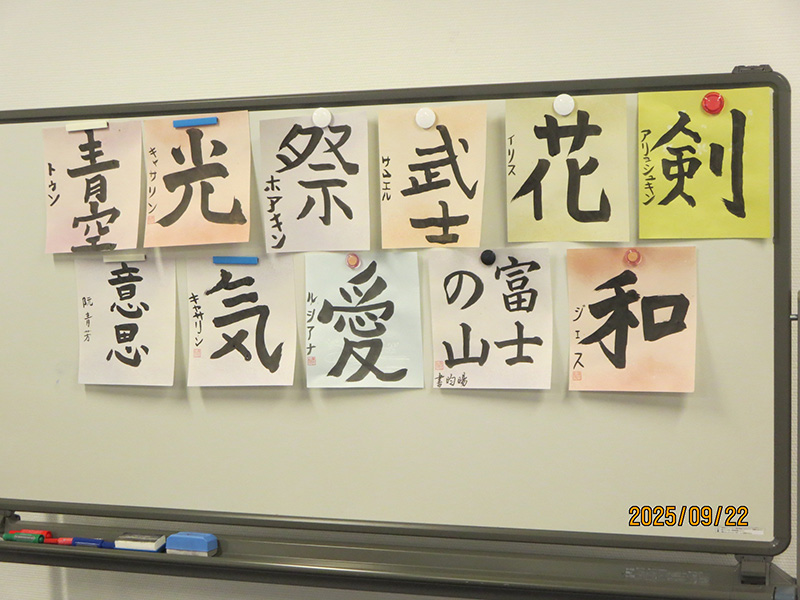 青空
トゥン
光
キャサリン
祭
ホアキン
武士
サムエル
花
イリス
剣
アリュシュキン
意思
阮青芳
気
キャサリン
愛
ルシアナ
富士
の山
和
ジェス
2025/09/22